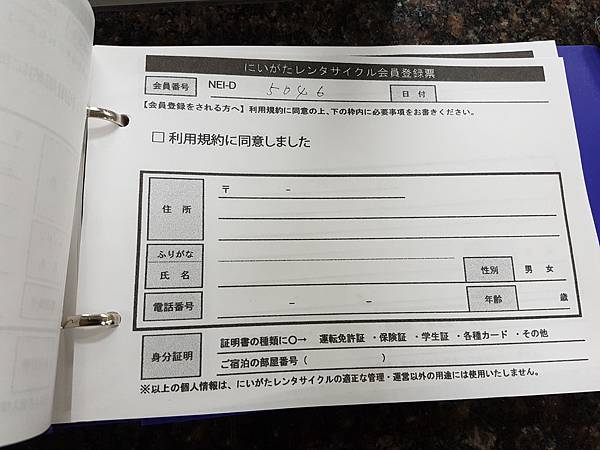 にいがたレンタサイクル会員登録票
会員番号 NEI-D 5046 日付
【会員登録をされる方へ】利用規約に同意の上、下の枠内に必要事項をお書きください。
□ 利用規約に同意しました
住所 〒 －
ふりがな
氏名 性別 男 女
電話番号 － － 年齢 歳
身分証明 証明書の種類に○→ 運転免許証 ・保険証 ・学生証 ・各種カード ・その他
ご宿泊の部屋番号（ ）
※以上の個人情報は、にいがたレンタサイクルの適正な管理・運営以外の用途には使用いたしません。